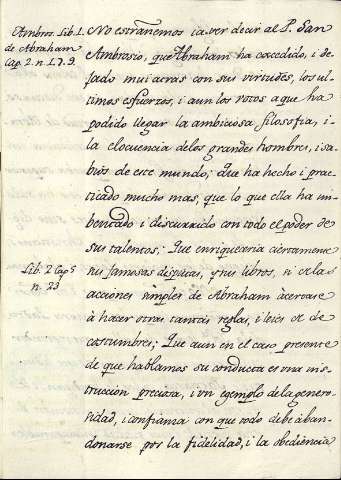 Ambros. Lib. 1.
de Abraham
Cap. 2. n. 1. 7. 9.
No estrañemos ia ver decir al P. San
Ambrosio, que Abraham ha excedido, i de-
jado mui atras con sus virtudes, los ul-
timos esfuerzos, i aun los votos a que ha
podido llegar la ambiciosa filosofia, i
la elocuencia delos grandes hombres, i sa-
bios de este mundo; Que ha hecho i prac-
ticado mucho mas, que lo que ella ha in-
bentado i discurrido con todo el poder de
sus talentos; Que enriqueceria ciertamente
sus famosas disputas, y sus libros, si de las
Lib. 2 Cap.
n. 23
acciones simples de Abraham
à hacer otras tantas reglas, i leies de
costumbres; Que aun en el caso presente
de que hablamos su conducta es una ins-
truccion preciosa, i un egemplo dela genero-
sidad, i confianza con que todo debe aban-
donarse por la fidelidad, i la obediencia